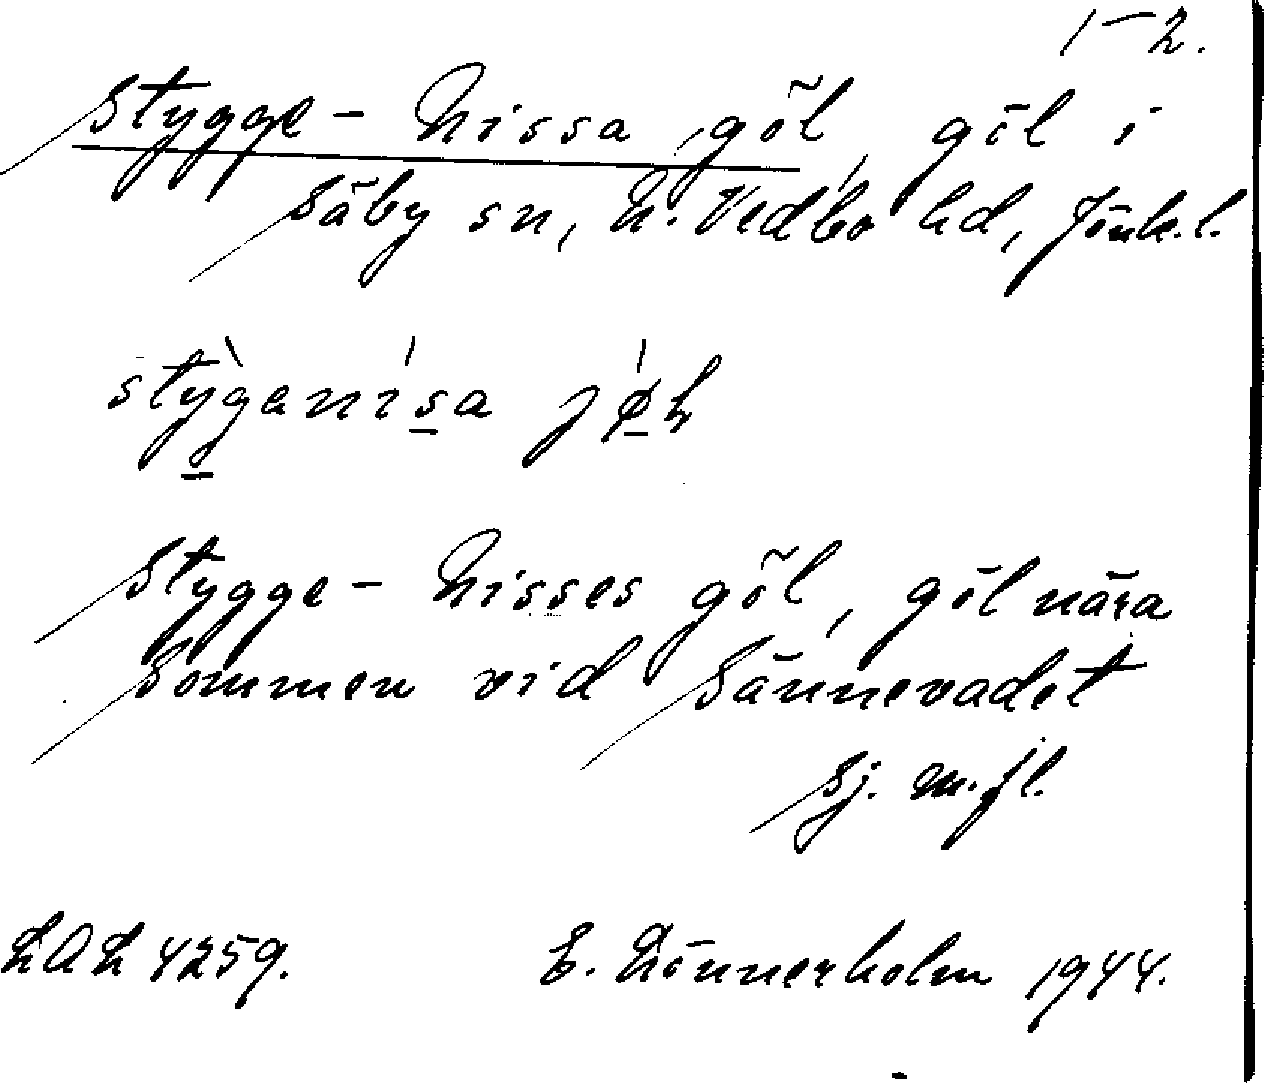 1–2.
Stygge-Nissa göl, göl i
Säby sn, N. Vedbo hd, Jönk.l.
stỳganísa jǿl
Stygge-Nisses göl, göl nära
Sommen vid Sännevadet
Sj. m.fl.
LAL 4259. E. Rönnerholm 1944.